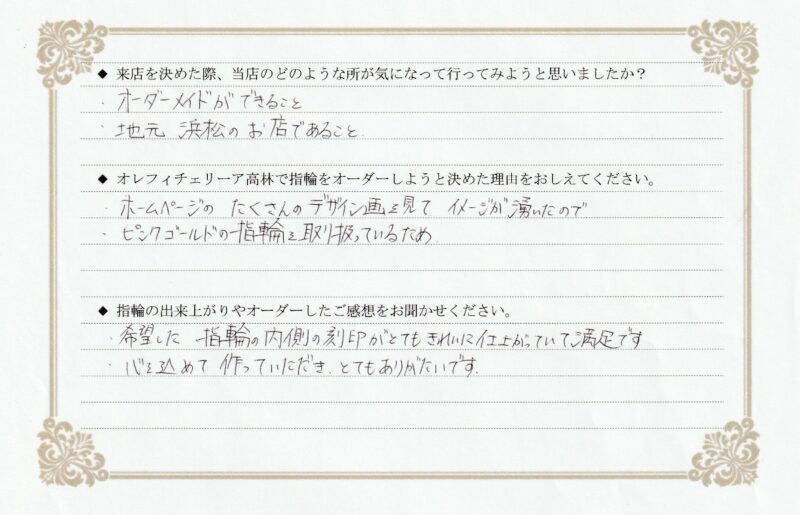 ◆ 来店を決めた際、当店のどのような所が気になって行ってみようと思いましたか？
・オーダーメイドができること
・地元 浜松のお店であること
◆ オレフィチェリーア高林で指輪をオーダーしようと決めた理由をおしえてください。
・ホームページの たくさんのデザイン画を見て イメージが湧いたので
・ピンクゴールドの指輪を取り扱っているため
◆ 指輪の出来上がりやオーダーしたご感想をお聞かせください。
・希望した 指輪の内側の刻印がとてもきれいに仕上がっていて満足です
・心を込めて 作っていただき、とてもありがたいです。